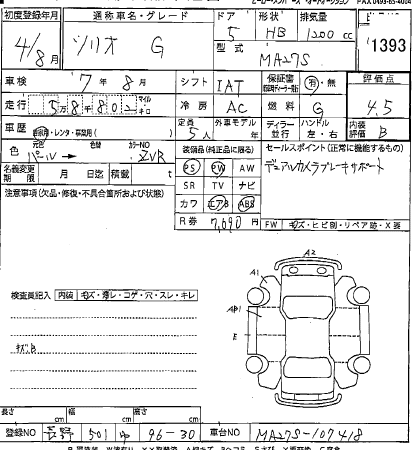 初度登録年月 通称車名・グレード ドア 形状 排気量
4/8月 ソリオ G 5 HB 1200cc 1393
型式 MA27S
車検 7年8月 シフト IAT 保証書 有・無 評価点
走行 5万8千802 マイル キロ 冷房 AC 燃料 G 4.5
車歴 自家用・レンタ・事業用( ) 定員 5人 外車モデル 年 ディーラー 並行 ハンドル 左・右 内装評価 B
色 元色 パール 色替 カラーNO ZVR 装備品(純正品に限る) セールスポイント(正常に機能するもの)
名義変更期限 月 日迄 積載 t PS PW AW デュアルカメラブレーキサポート
注意事項(欠品・修復・不具合箇所および状態) SR TV ナビ
カワ エアB ABS
R券 7,090円 FW キズ・ヒビ割・リペア跡・X要
検査員記入 内装 キズ・汚レ・コゲ・穴・スレ・キレ
A2
A1
E
キズB
長さ cm 幅 cm 高さ cm
登録NO 長野 501 ゆ 96-30 車台NO MA27S-107418